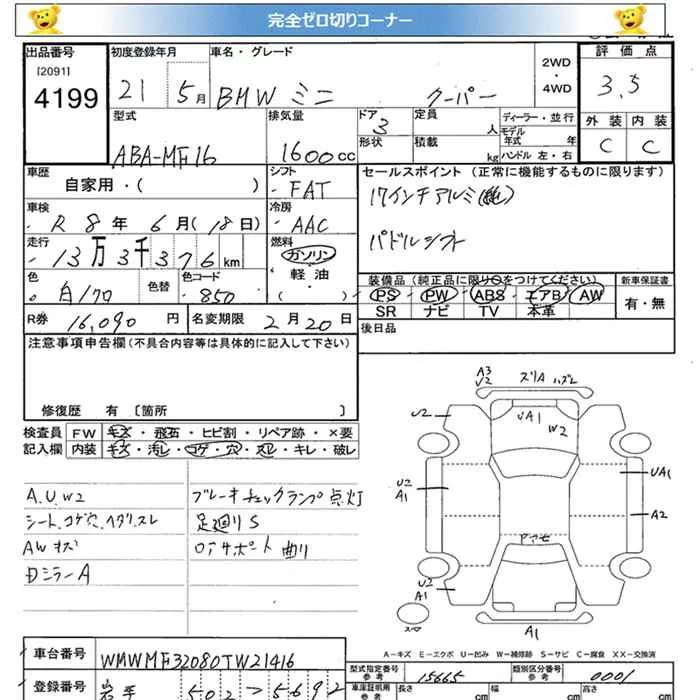 完全ゼロ切りコーナー
出品番号 初度登録年月 車名・グレード 評価点
[2091]
4199 21 5月 BMW ミニ クーパー 2WD・4WD 3.5
型式 排気量 ドア 定員 ディーラー・並行 外装 内装
ABA-MF16 1600cc 3 人 モデル年式 年 C C
形状 積載 kg ハンドル 左・右
車歴 シフト セールスポイント (正常に機能するものに限ります)
自家用・( ) ・FAT 17インチアルミ(純)
車検 冷房
R 8年 6月(18日) ・AAC パドルシフト
走行 燃料
13万3千376km ガソリン
色 色替 色コード 軽油 装備品(純正品に限り○をつけてください) 新車保証書
白/クロ ・850 ・( ) PS PW ABS エアB AW 有・無
SR ナビ TV 本革
R券 16,090円 名変期限 2月20日 後日品
注意事項申告欄(不具合内容等は具体的に記入して下さい)
修復歴 有 〔箇所 〕
検査員 FW キズ・飛石・ヒビ割・リペア跡・×要
記入欄 内装 キズ・汚レ・コゲ・穴・スレ・キレ・破レ
A.U.W2 ブレーキチェックランプ点灯
シート、コゲ穴、ヘタリ、スレ 足廻りS
AWキズ ロアサポート曲り
Dミラー A
A3
U2
スリA ハズレ
U2 UA1
W2
U2
A1
UA1
A2
U2
A1
A1
A－キズ E－エクボ U－凹み W－補修跡 S－サビ C－腐食 XX－交換済
車台番号 WMWMF32080TW21416 型式指定番号 参考 15665 類別区分番号 参考 0001
登録番号 岩手 502 5692 車庫証明用 参考 長さ cm 幅 cm 高さ cm